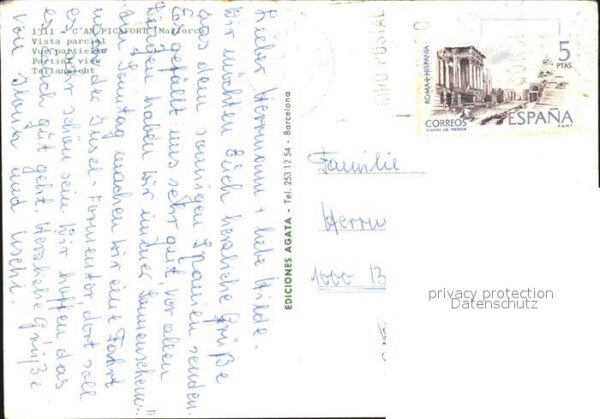 1311 - C'AN PICAFORT (Mallorca)
Vista parcial
Vue partielle
Partial view
Teilansicht
Lieber Herrmann + liebe Hilde.
Wir möchten Euch herzliche Grüße
aus dem sonnigen Spanien senden.
Es gefällt uns sehr gut, vor allen
Dingen haben wir immer Sonnenschein.
am Sonntag machen wir eine Fahrt
nach der Insel - Formentor dort soll
es sehr schön sein. Wir hoffen das
es Euch gut geht. Herzliche Grüße
von und Uschi.
EDICIONES AGATA - Tel. 253 12 54 - Barcelona
ROMA+HISPANIA
5
PTAS
CORREOS
TEATRO DE MERIDA
ESPAÑA
F.N.M.T.
Familie
Herrm
1000 B
privacy protection
Datenschutz